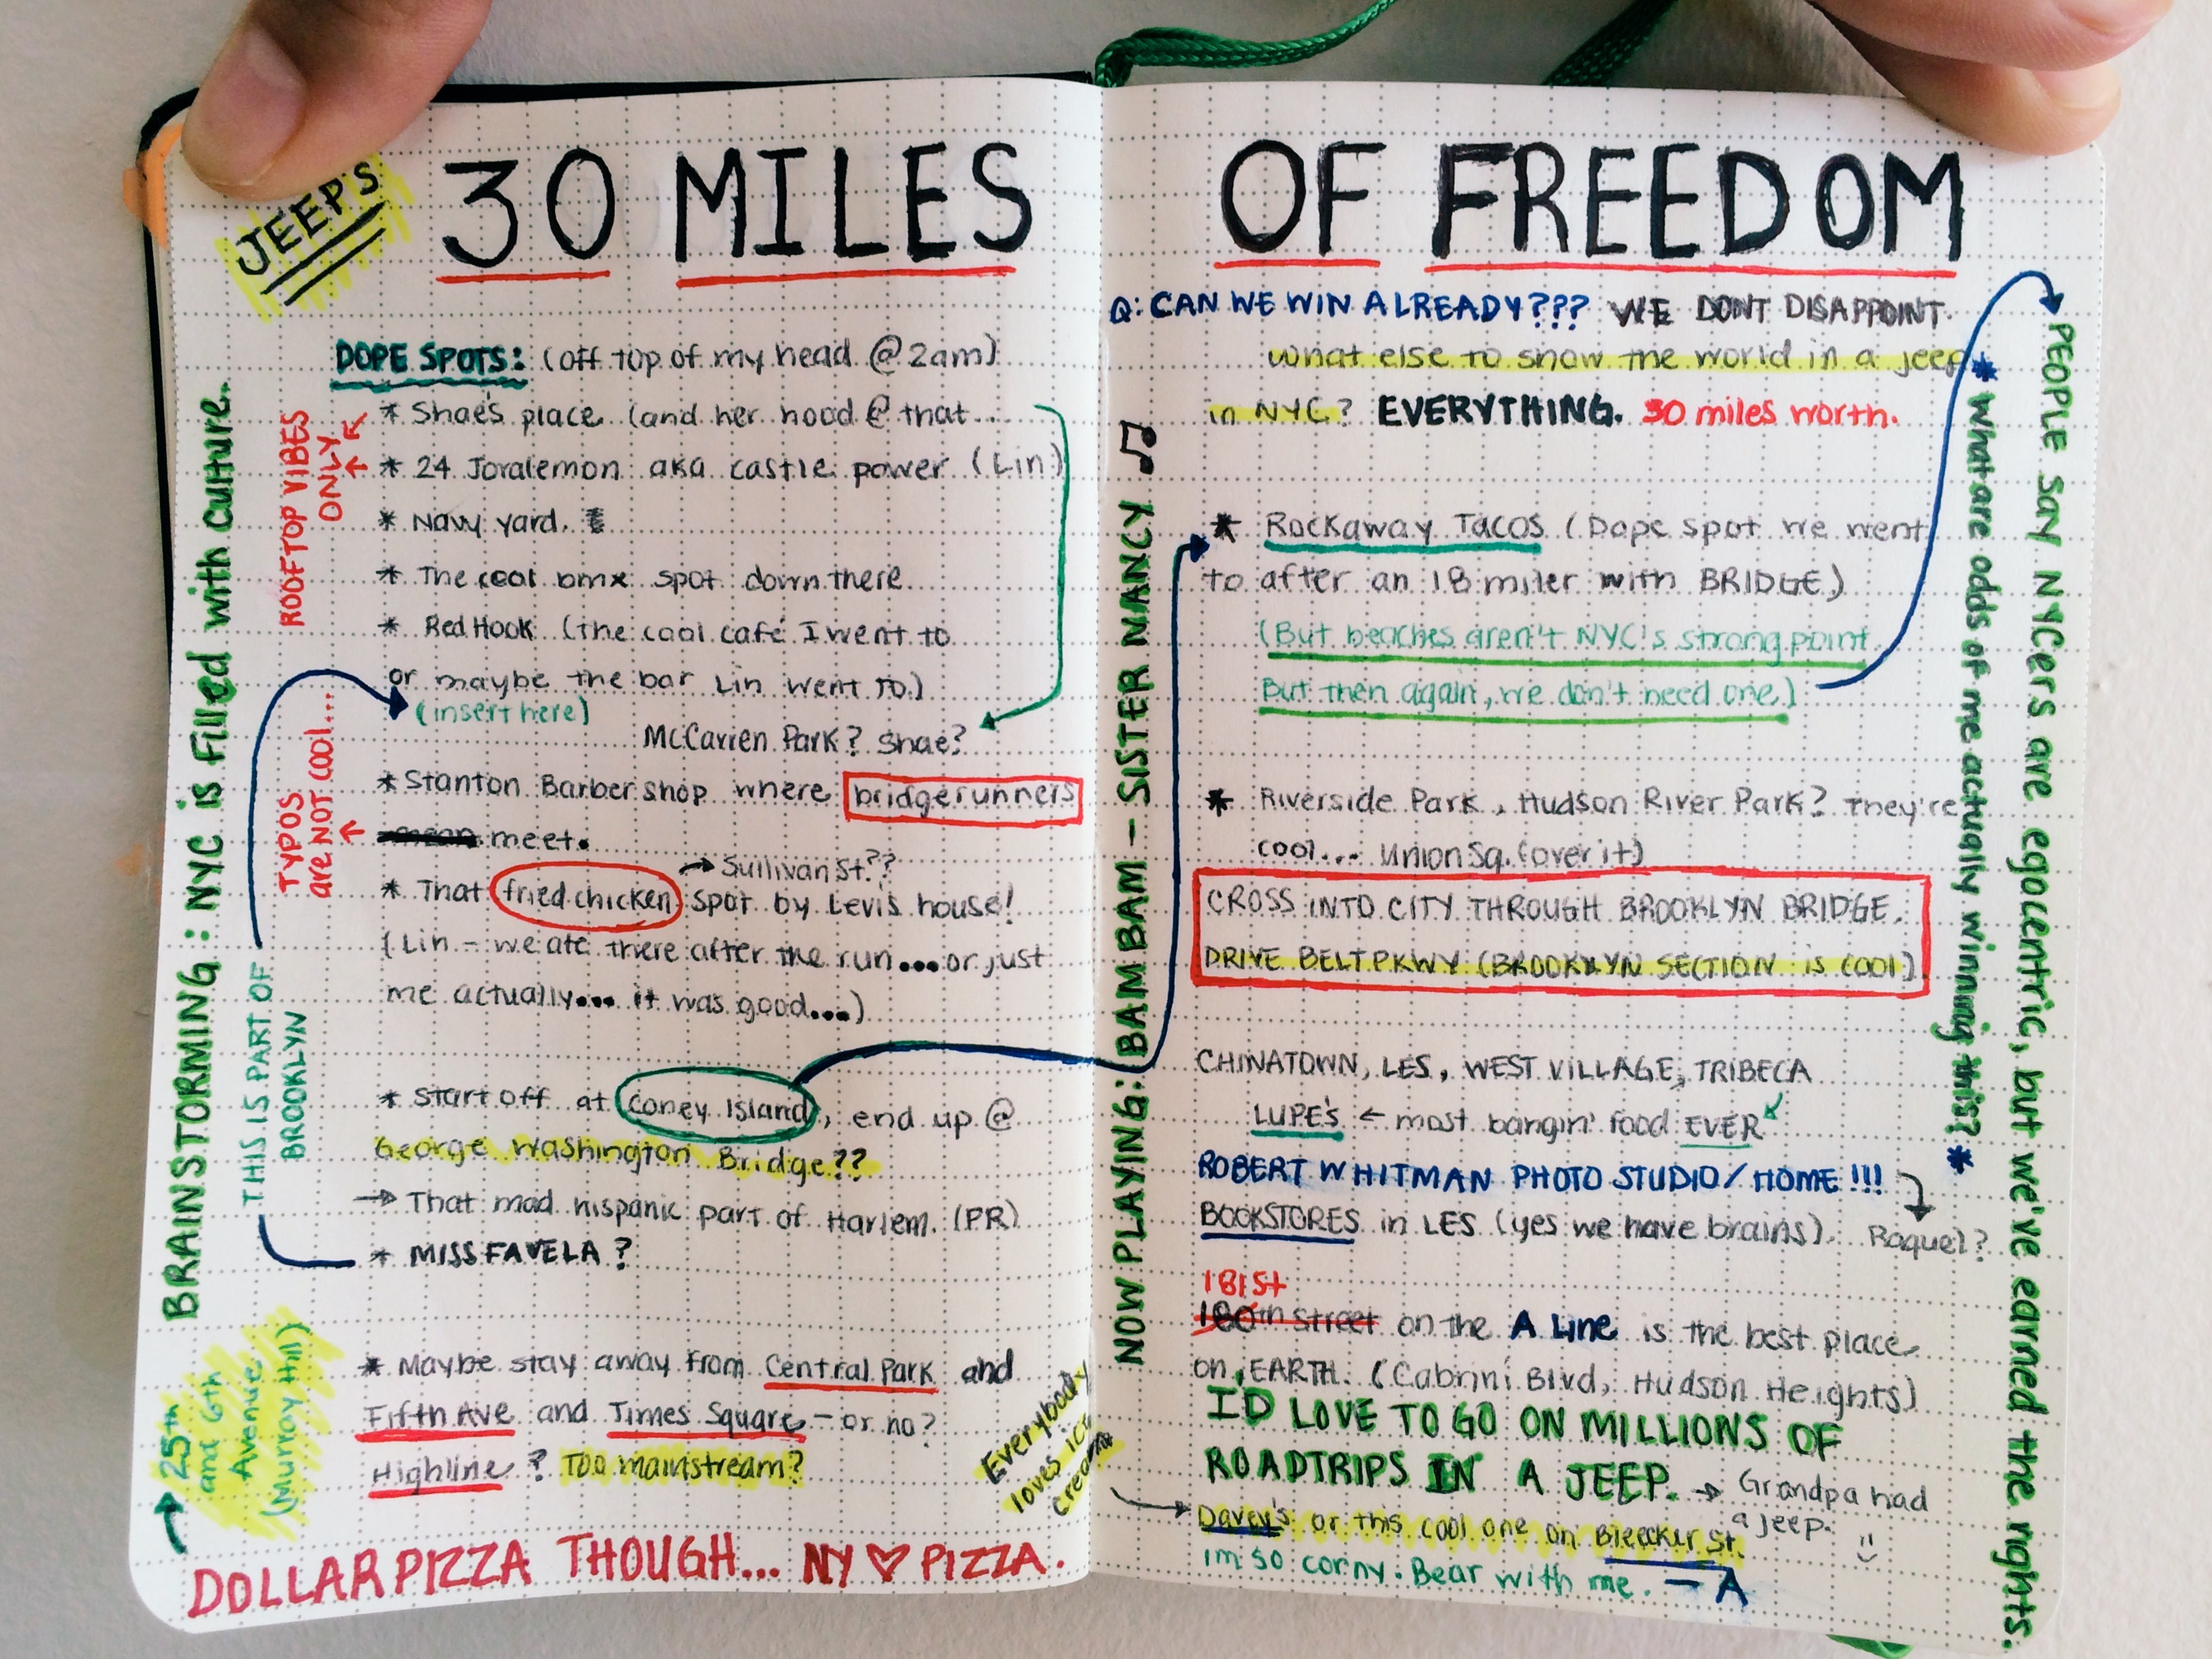 JEEPS
30 MILES
DOPE SPOTS: (off top of my head @ 2am)
* Shae's place (and her hood @ that..
* 24 Joralemon aka castle power (Lin)
* Navy yard.
* The cool bmx spot down there
* Red Hook (the cool café I went to
or maybe the bar Lin went to.)
(insert here)
McCarren Park? Shae?
* Stanton Barber shop where bridgerunners
meet.
→ Sullivan St.??
* That fried chicken spot by Levi's house!
(Lin - we ate there after the run... or just
me actually... it was good...)
* Start off at Coney Island, end up @
George Washington Bridge??
→ That mad hispanic part of Harlem. (PR)
* MISS FAVELA?
* Maybe stay away from Central Park and
Fifth Ave and Times Square - or no?
Highline? Too mainstream?
DOLLAR PIZZA THOUGH... NY ♡ PIZZA.
BRAINSTORMING: NYC is Filled with Culture.
ROOFTOP VIBES
ONLY
TYPOS
are NOT cool...
THIS IS PART OF
BROOKLYN
→ 25th
and 6th
Avenue
(Murray Hill)
Everybody
loves ice
cream
OF FREEDOM
Q: CAN WE WIN ALREADY??? WE DONT DISAPPOINT.
What else to show the world in a jeep *
in NYC? EVERYTHING. 30 miles worth.
* Rockaway Tacos (Dope spot we went
to after an 18 miler with BRIDGE)
(But beaches aren't NYC's strong point
But then again, we don't need one.)
* Riverside Park, Hudson River Park? They're
cool... Union Sq. (over it)
CROSS INTO CITY THROUGH BROOKLYN BRIDGE.
DRIVE BELT PKWY (BROOKLYN SECTION is cool)
CHINATOWN, LES, WEST VILLAGE, TRIBECA
LUPE'S ← most bangin' food EVER
ROBERT WHITMAN PHOTO STUDIO/HOME!!!
BOOKSTORES in LES (yes we have brains). Raquel?
181st
180th Street on the A Line is the best place
on EARTH. (Cabrini Blvd, Hudson Heights)
I'D LOVE TO GO ON MILLIONS OF
ROADTRIPS IN A JEEP. → Grandpa had
a jeep.
Davey's or this cool one on Bleecker St.
im so corny. Bear with me. - A
NOW PLAYING: BAM BAM - SISTER NANCY ♫
* What are odds of me actually winning this? *
PEOPLE SAY NYCers are egocentric, but we've earned the rights.